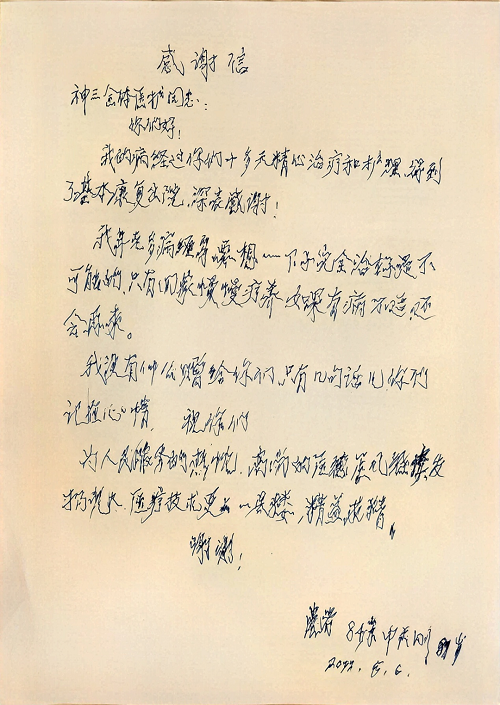 感谢信
神三全体医护同志：
你们好！
我的病经过你们十多天精心治疗和护理，得到
了基本康复出院，深表感谢！
我年老多病 想一下子完全治好是不
可能的，只有回家慢慢疗养 如果有病不适还
会再来。
我没有什么赠给你们，只有几句话儿你们
记在心情，祝你们
为人民服务的热忱，高尚的医德医风继续发
扬光大，医疗技术更上一层楼，精益求精。
谢谢！
8床 申 刚 岁
5.6.